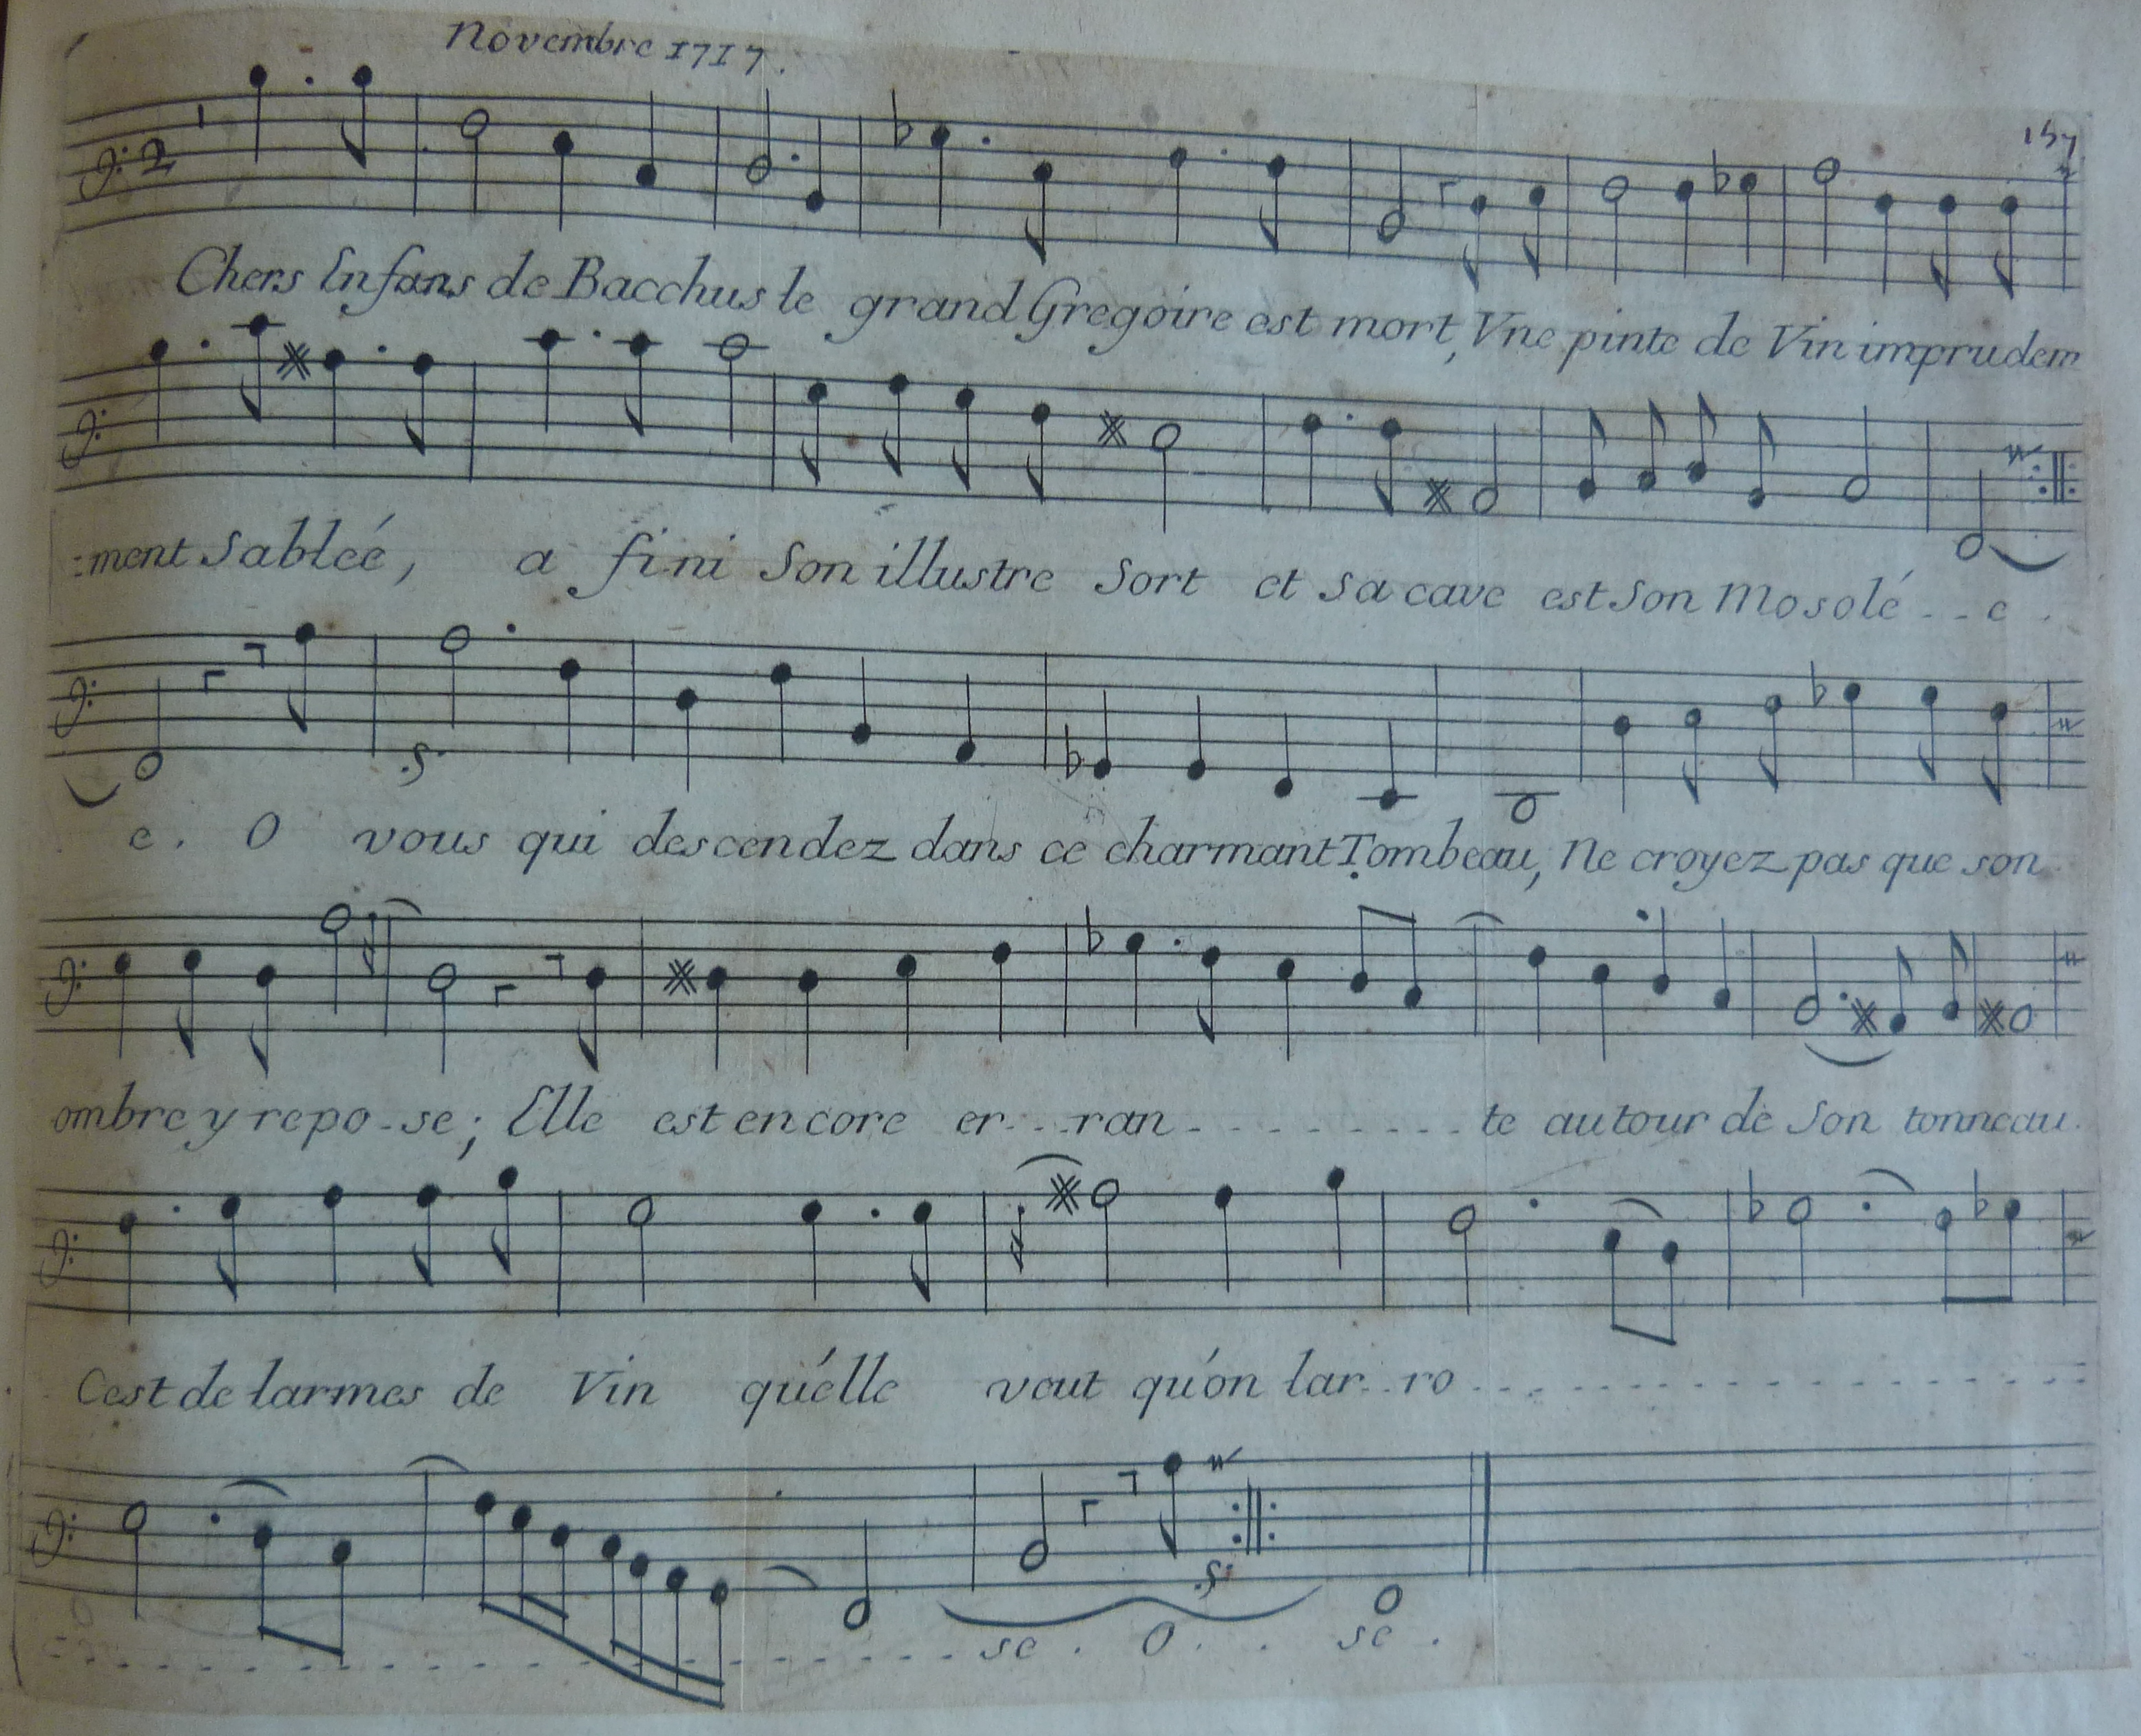 Novembre 1717.
157
Chers Enfans de Bacchus le grand Gregoire est mort, Vne pinte de Vin imprudem
:ment Sableé, a fini Son illustre Sort et Sa cave est Son Mosolé - - e .
e. O vous qui descendez dans ce charmant Tombeau, Ne croyez pas que son
ombre y repo-se; Elle est encore er- - -ran - - - - - - - - te autour de Son tonneau.
Cest de larmes de Vin qu'elle veut qu'on lar- -ro - - - - - - - - - - - - - - - - -
- - - - - - - - - - - - - - - - - - se . O . . se .